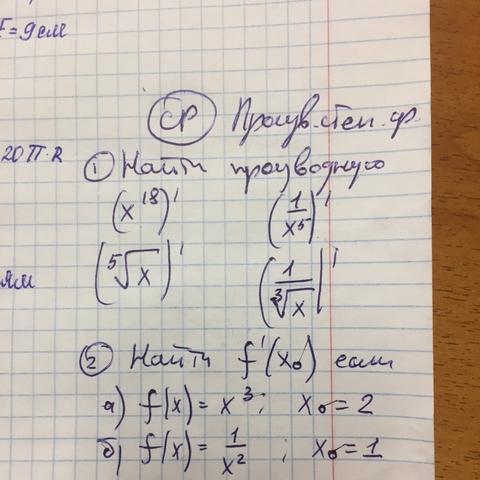 F = 9 см
(СР) Произв. степ. ф.
20π·R
① Найти производную
(x¹⁸)' (1/x⁵)'
(⁵√x)' (1/³√x)'
② Найти f'(x₀) если
а) f(x) = x³; x₀ = 2
б) f(x) = 1/x²; x₀ = 1